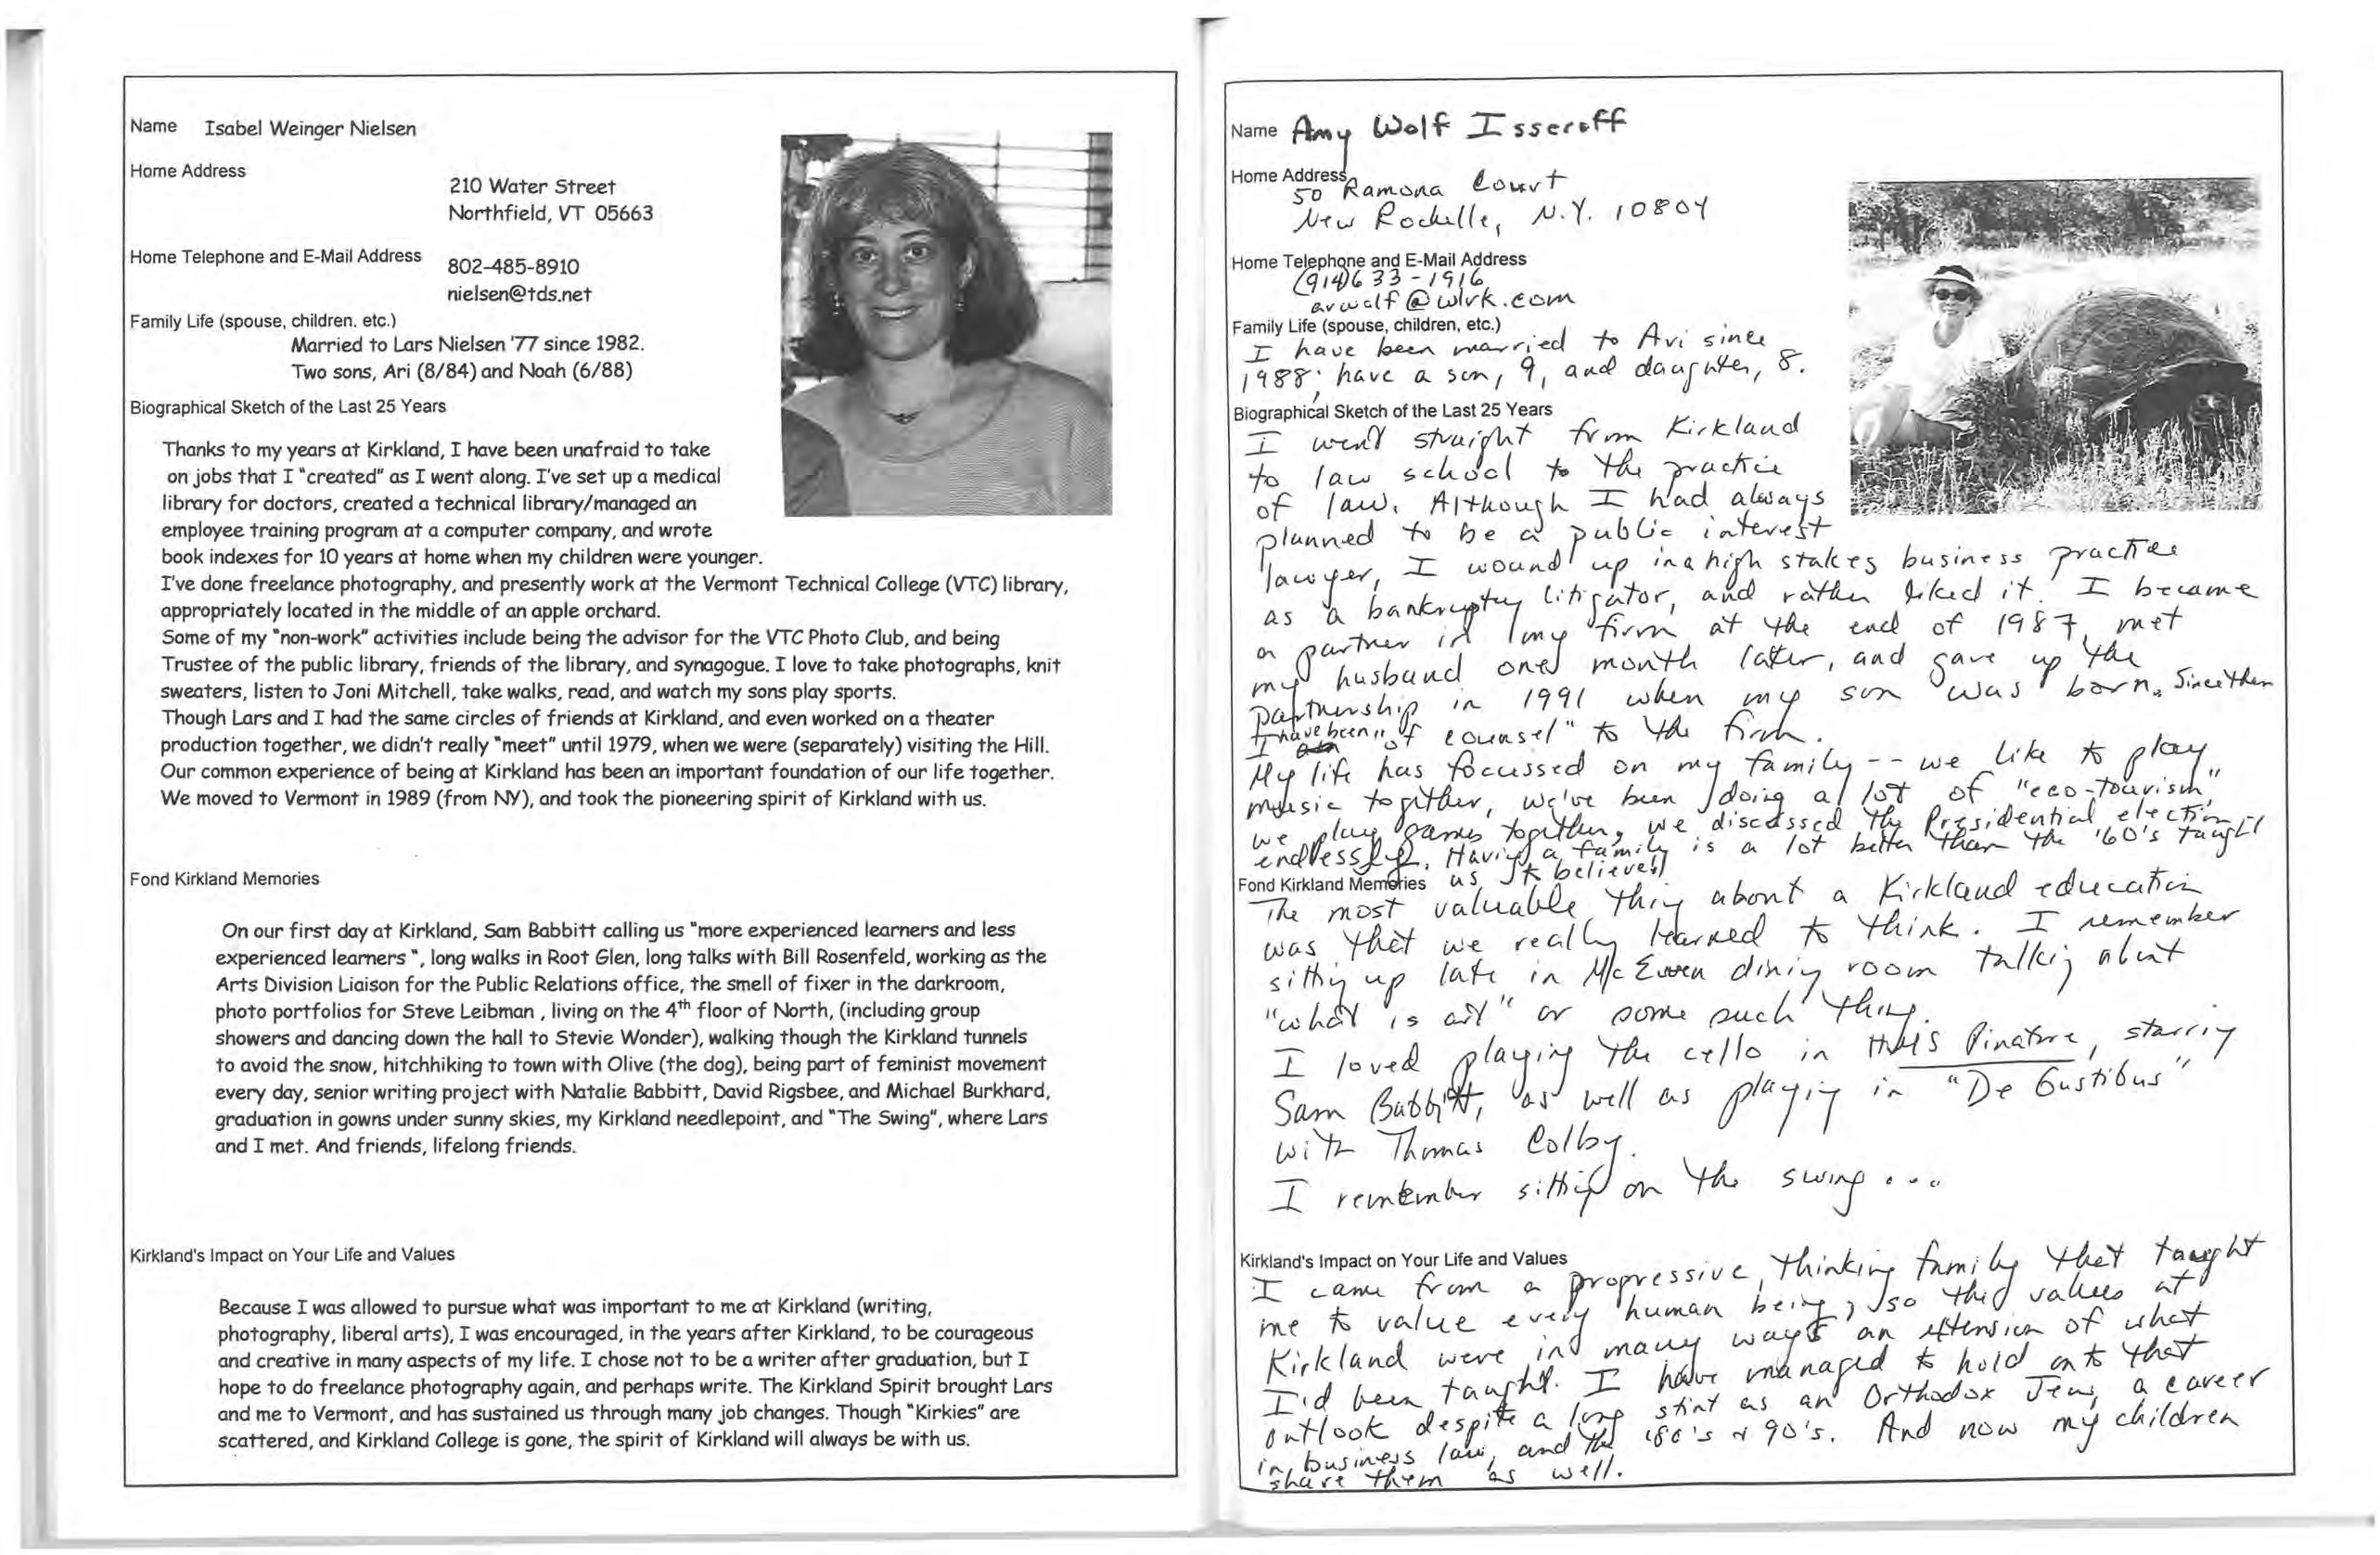 Name Isabel Weinger Nielsen
Home Address
210 Water Street
Northfield, VT 05663
Home Telephone and E-Mail Address
802-485-8910
nielsen@tds.net
Family Life (spouse, children, etc.)
Married to Lars Nielsen '77 since 1982.
Two sons, Ari (8/84) and Noah (6/88)
Biographical Sketch of the Last 25 Years
Thanks to my years at Kirkland, I have been unafraid to take
on jobs that I "created" as I went along. I've set up a medical
library for doctors, created a technical library/managed an
employee training program at a computer company, and wrote
book indexes for 10 years at home when my children were younger.
I've done freelance photography, and presently work at the Vermont Technical College (VTC) library,
appropriately located in the middle of an apple orchard.
Some of my "non-work" activities include being the advisor for the VTC Photo Club, and being
Trustee of the public library, friends of the library, and synagogue. I love to take photographs, knit
sweaters, listen to Joni Mitchell, take walks, read, and watch my sons play sports.
Though Lars and I had the same circles of friends at Kirkland, and even worked on a theater
production together, we didn't really "meet" until 1979, when we were (separately) visiting the Hill.
Our common experience of being at Kirkland has been an important foundation of our life together.
We moved to Vermont in 1989 (from NY), and took the pioneering spirit of Kirkland with us.
Fond Kirkland Memories
On our first day at Kirkland, Sam Babbitt calling us "more experienced learners and less
experienced learners ", long walks in Root Glen, long talks with Bill Rosenfeld, working as the
Arts Division Liaison for the Public Relations office, the smell of fixer in the darkroom,
photo portfolios for Steve Leibman , living on the 4th floor of North, (including group
showers and dancing down the hall to Stevie Wonder), walking though the Kirkland tunnels
to avoid the snow, hitchhiking to town with Olive (the dog), being part of feminist movement
every day, senior writing project with Natalie Babbitt, David Rigsbee, and Michael Burkhard,
graduation in gowns under sunny skies, my Kirkland needlepoint, and "The Swing", where Lars
and I met. And friends, lifelong friends.
Kirkland's Impact on Your Life and Values
Because I was allowed to pursue what was important to me at Kirkland (writing,
photography, liberal arts), I was encouraged, in the years after Kirkland, to be courageous
and creative in many aspects of my life. I chose not to be a writer after graduation, but I
hope to do freelance photography again, and perhaps write. The Kirkland Spirit brought Lars
and me to Vermont, and has sustained us through many job changes. Though "Kirkies" are
scattered, and Kirkland College is gone, the spirit of Kirkland will always be with us.
Name Amy Wolf Isseroff
Home Address
50 Ramona Court
New Rochelle, N.Y. 10804
Home Telephone and E-Mail Address
(914)633-1916
arwolf@wlrk.com
Family Life (spouse, children, etc.)
I have been married to Avi since
1988; have a son, 9, and daughter, 8.
Biographical Sketch of the Last 25 Years
I went straight from Kirkland
to law school to the practice
of law. Although I had always
planned to be a public interest
lawyer, I wound up in a high stakes business practice
as a bankruptcy litigator, and rather liked it. I became
a partner in my firm at the end of 1987, met
my husband one month later, and gave up the
partnership in 1991 when my son was born. Since then
I have been "of counsel" to the firm.
My life has focussed on my family -- we like to play
music together, we've been doing a lot of "eco-tourism",
we play games together, we discussed the Presidential election
endlessly. Having a family is a lot better than the '60's taught
us to believe!
Fond Kirkland Memories
The most valuable thing about a Kirkland education
was that we really learned to think. I remember
sitting up late in McEwen dining room talking about
"what is art" or some such thing.
I loved playing the cello in Pinafore, starring
Sam Babbitt, as well as playing in "De Gustibus"
with Thomas Colby.
I remember sitting on the swing...
Kirkland's Impact on Your Life and Values
I came from a progressive, thinking family that taught
me to value every human being, so the values at
Kirkland were in many ways an extension of what
I'd been taught. I have managed to hold onto that
outlook despite a long stint as an Orthodox Jew, a career
in business law, and the '80's & 90's. And now my children
share them as well.